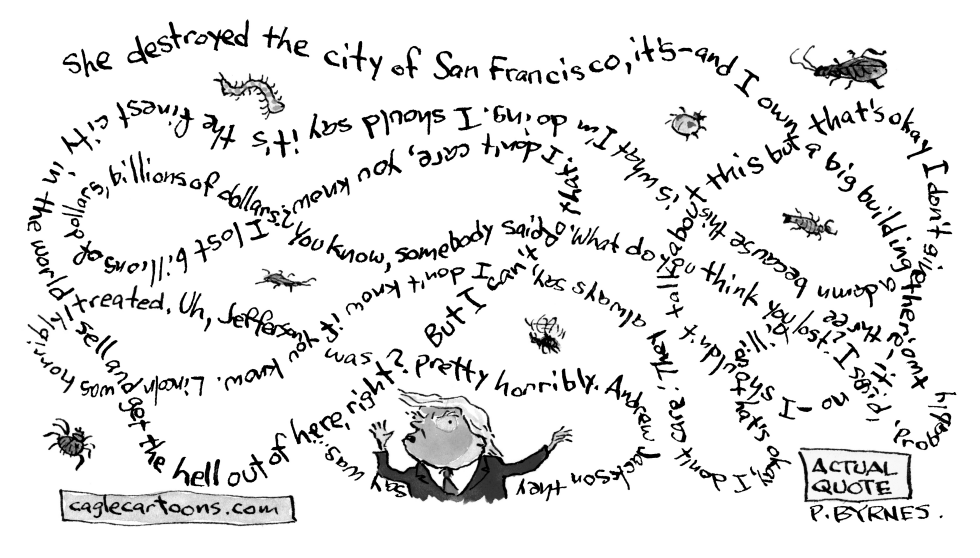 She destroyed the city of San Francisco, it's-and I own a big building there-it's no-I shouldn't talk about this but that's okay I don't give a damn because this is what I'm doing. I should say it's the finest city in the world sell and get the hell out of here, right? But I can't do that. I don't care, you know? I lost billions of dollars, billions of dollars. You know, somebody said, 'What do you think you lost?' I said, 'Probably two, three billion. That's okay, I don't care.' They always say, I don't know if you know. Lincoln was horribly treated. Uh, Jefferson was pretty horribly. Andrew Jackson they say was
caglecartoons.com
ACTUAL
QUOTE
P. BYRNES.